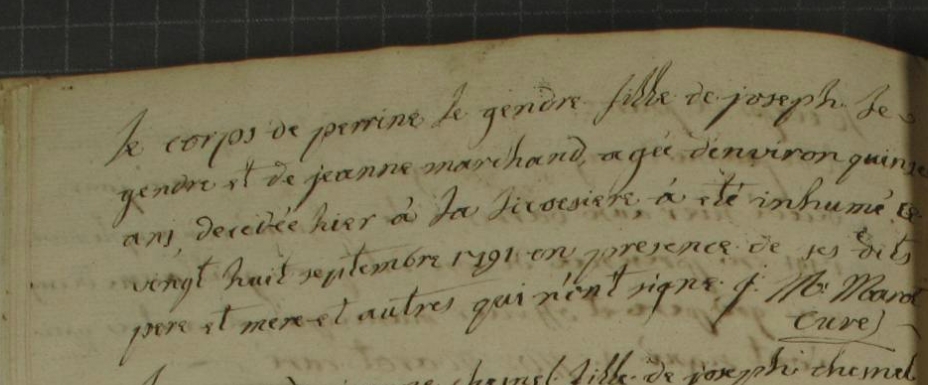 le corps de perrine le gendre fille de joseph le
gendre et de jeanne marchand, agée denviron quinse
ans, decedée hier à la
à eté inhumé ce
vingt huit septembre 1791 en presence de ses dits
pere et mere et autres qui n'ont signe. j. M. Marot
Curé
fille de joseph chemel